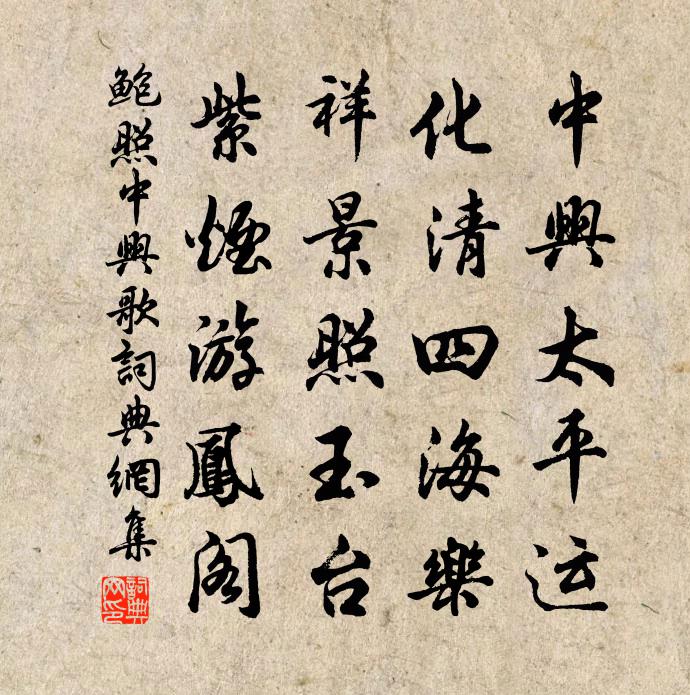 中興太平运
化清四海樂
祥景照玉台
紫煙游鳳阁
鲍照中興歌詞典網集
詞典網印